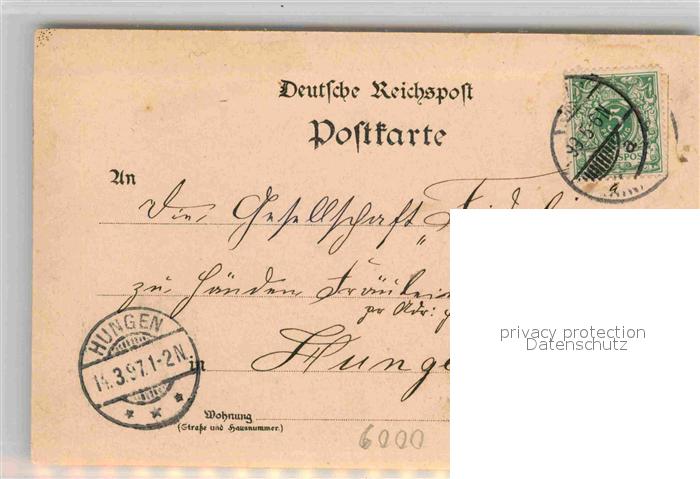 Deutsche Reichspost
Postkarte
An
Die Gesellschaft „
zu Händen Fräulein
pr Adr:
in Hunge
HUNGEN
14.3.97.1-2N.
Wohnung
(Straße und Hausnummer.)
6000
privacy protection
Datenschutz